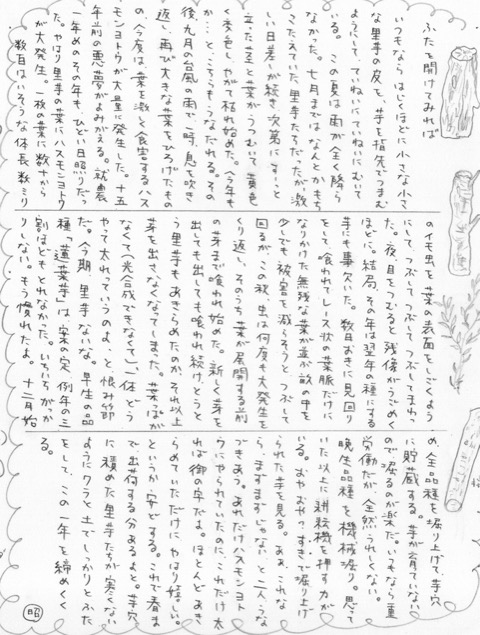 ふたを開けてみれば
いつもなら はじくほどに小さな小さ
な里芋の皮を、芋を指先でつまむ
ようにして、ていねいにていねいにむいて
いる。この夏は雨が全く降ら
なかった。七月まではなんとか もち
こたえていた里芋たちだったが、激
しい日差しが続き 次第に すーっと
立った茎と葉がうつむいて 黄色
く変色し、やがて枯れ始めた。今年も
か…と、こちらもうなだれる。その
後九月の台風の雨で一時、息を吹き
返し、再び大きな葉をひろげたもの
の、今度は、葉を激しく食害するハス
モンヨトウが大量に発生した。十五
年前の悪夢がよみがえる。就農
一年めのその年も、ひどい日照りだっ
た。やはり里芋の葉にハスモンヨトウ
が大発生。一枚の葉に数十から
数百はいそうな体長数ミリ
のイモ虫を葉の表面をしごくよう
にして、つぶしてつぶしてつぶしてまわっ
た。夜、目をつむると残像がうごめく
ほどに。結局、その年は翌年の種にする
芋にも事欠いた。数日おきに見回り
をして、喰われてレース状の葉脈だけに
なりかけた無残な葉が並ぶ畝の中を
少しでも被害を減らそうと つぶして
回るが、この秋、虫は何度も大発生を
くり返し、そのうち葉が展開する前
の芽まで喰われ始めた。新しく芽を
出しても出しても喰われ続け、とうと
う里芋もあきらめたのか、それ以上
芽を出さなくなってしまった。葉っぱが
なくて(光合成できなくて)、一体どう
やって太れっていうのよ、と恨み節
だ。今期、里芋ないな。早生の品
種「蓮葉芋」は案の定、例年の三
割ほどもとれなかった。いちいちがっか
りしない。もう慣れたよ。十二月始
め、全品種を掘り上げて、芋穴
に貯蔵する。芋が育ていない
ので掘るのが楽だ。いつもなら重
労働だが、全然うれしくない。
晩生品種を機械掘り。思って
いた以上に耕耘機を押す力が
いる。おやおや?すきで掘り上げ
られた芋を見る。ああ、これな
ら、まずまずじゃない と二人うな
づきあう。あれだけハスモンヨト
ウにやられていたのに、これだけ太
れば御の字だよ。ほとんどあき
らめていただけに やはり嬉しい
というか、安どする。これで春ま
で出荷する分あるよと。芋穴
に積めた里芋たちが寒くない
ようにワラと土でしっかりとふた
をして、この一年を締めくく
る。